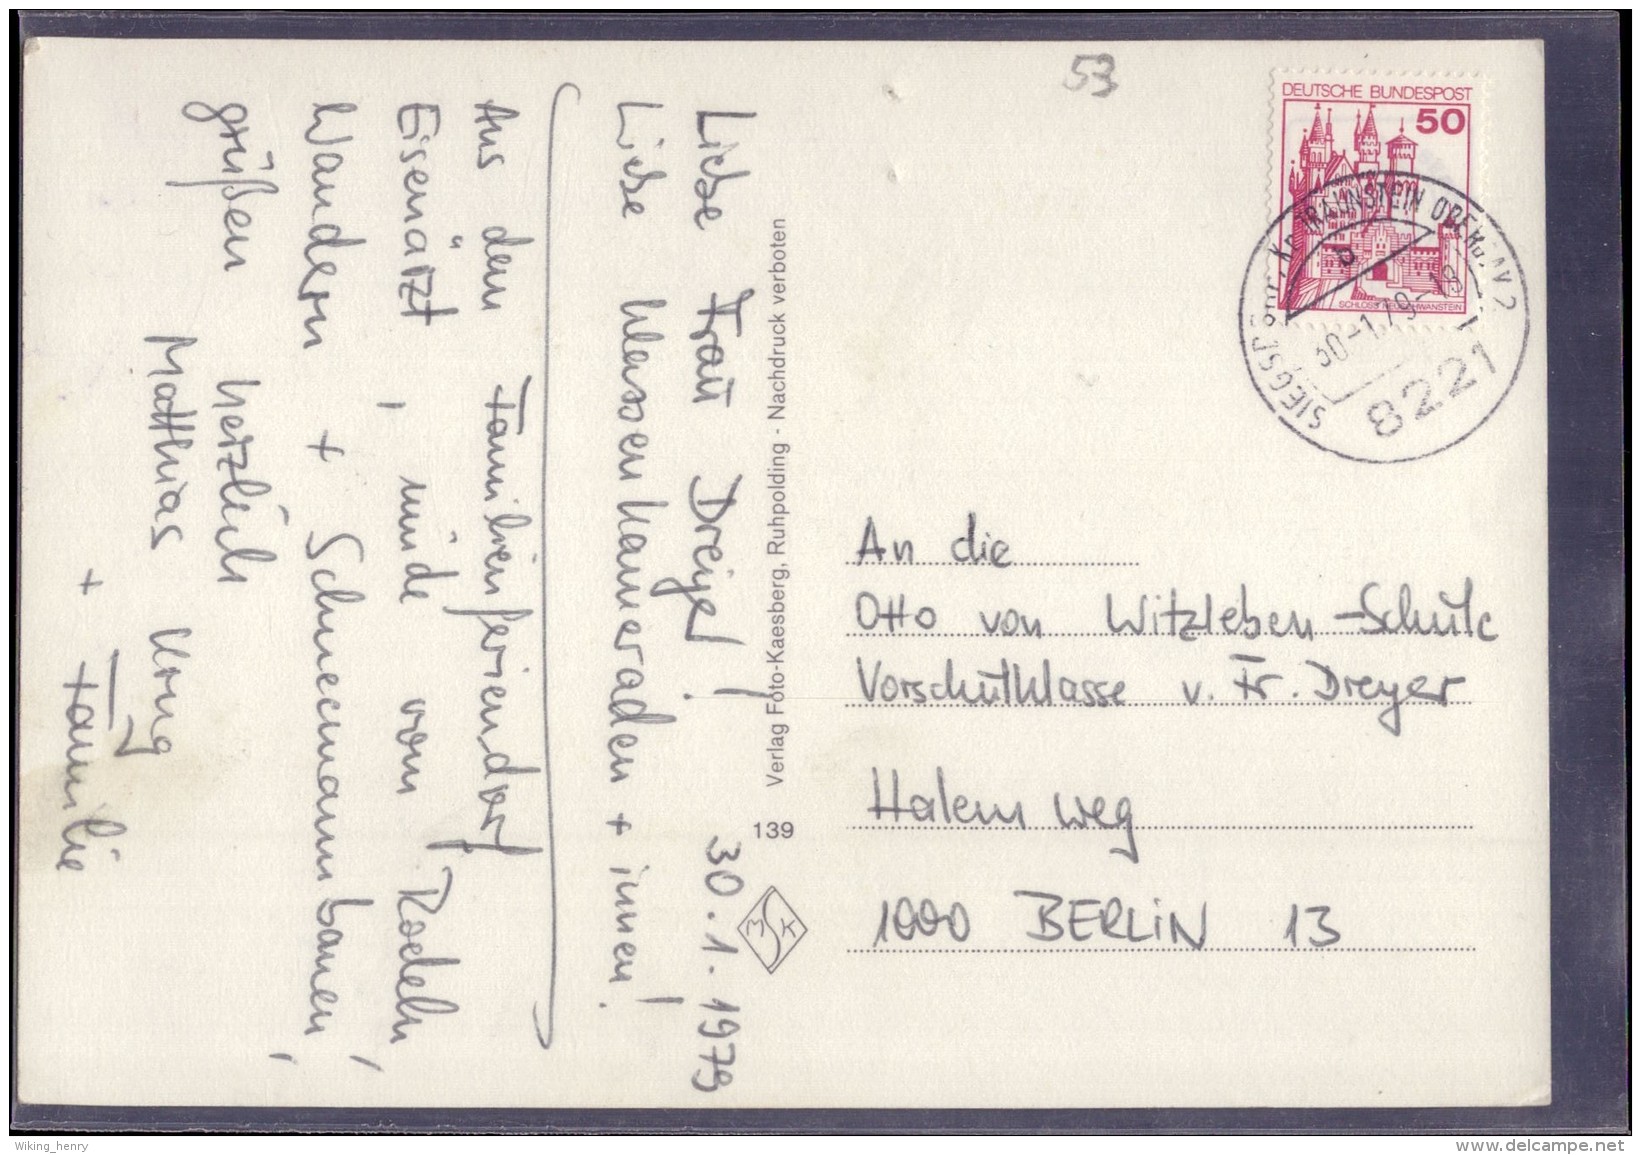 53
DEUTSCHE BUNDESPOST
50
SCHLOSS NEUSCHWANSTEIN
SIEGSDORF Kr TRAUNSTEIN OBERBAY 2
b
30-1.79-18
8221
Liebe Frau Dreyer! 30.1.1979
Liebe Klassenkameraden + innen!
Aus dem Familienferiendorf
Eisenärzt, müde vom Rodeln,
Wandern + Schneemannbauen,
grüßen herzlich
Matthias
+ Familie
Verlag Foto-Kaesberg, Ruhpolding - Nachdruck verboten
139
An die
Otto von Witzleben-Schule
Vorschulklasse v. Fr. Dreyer
Halemweg
1000 BERLIN 13
Wiking_henry
www.delcampe.net